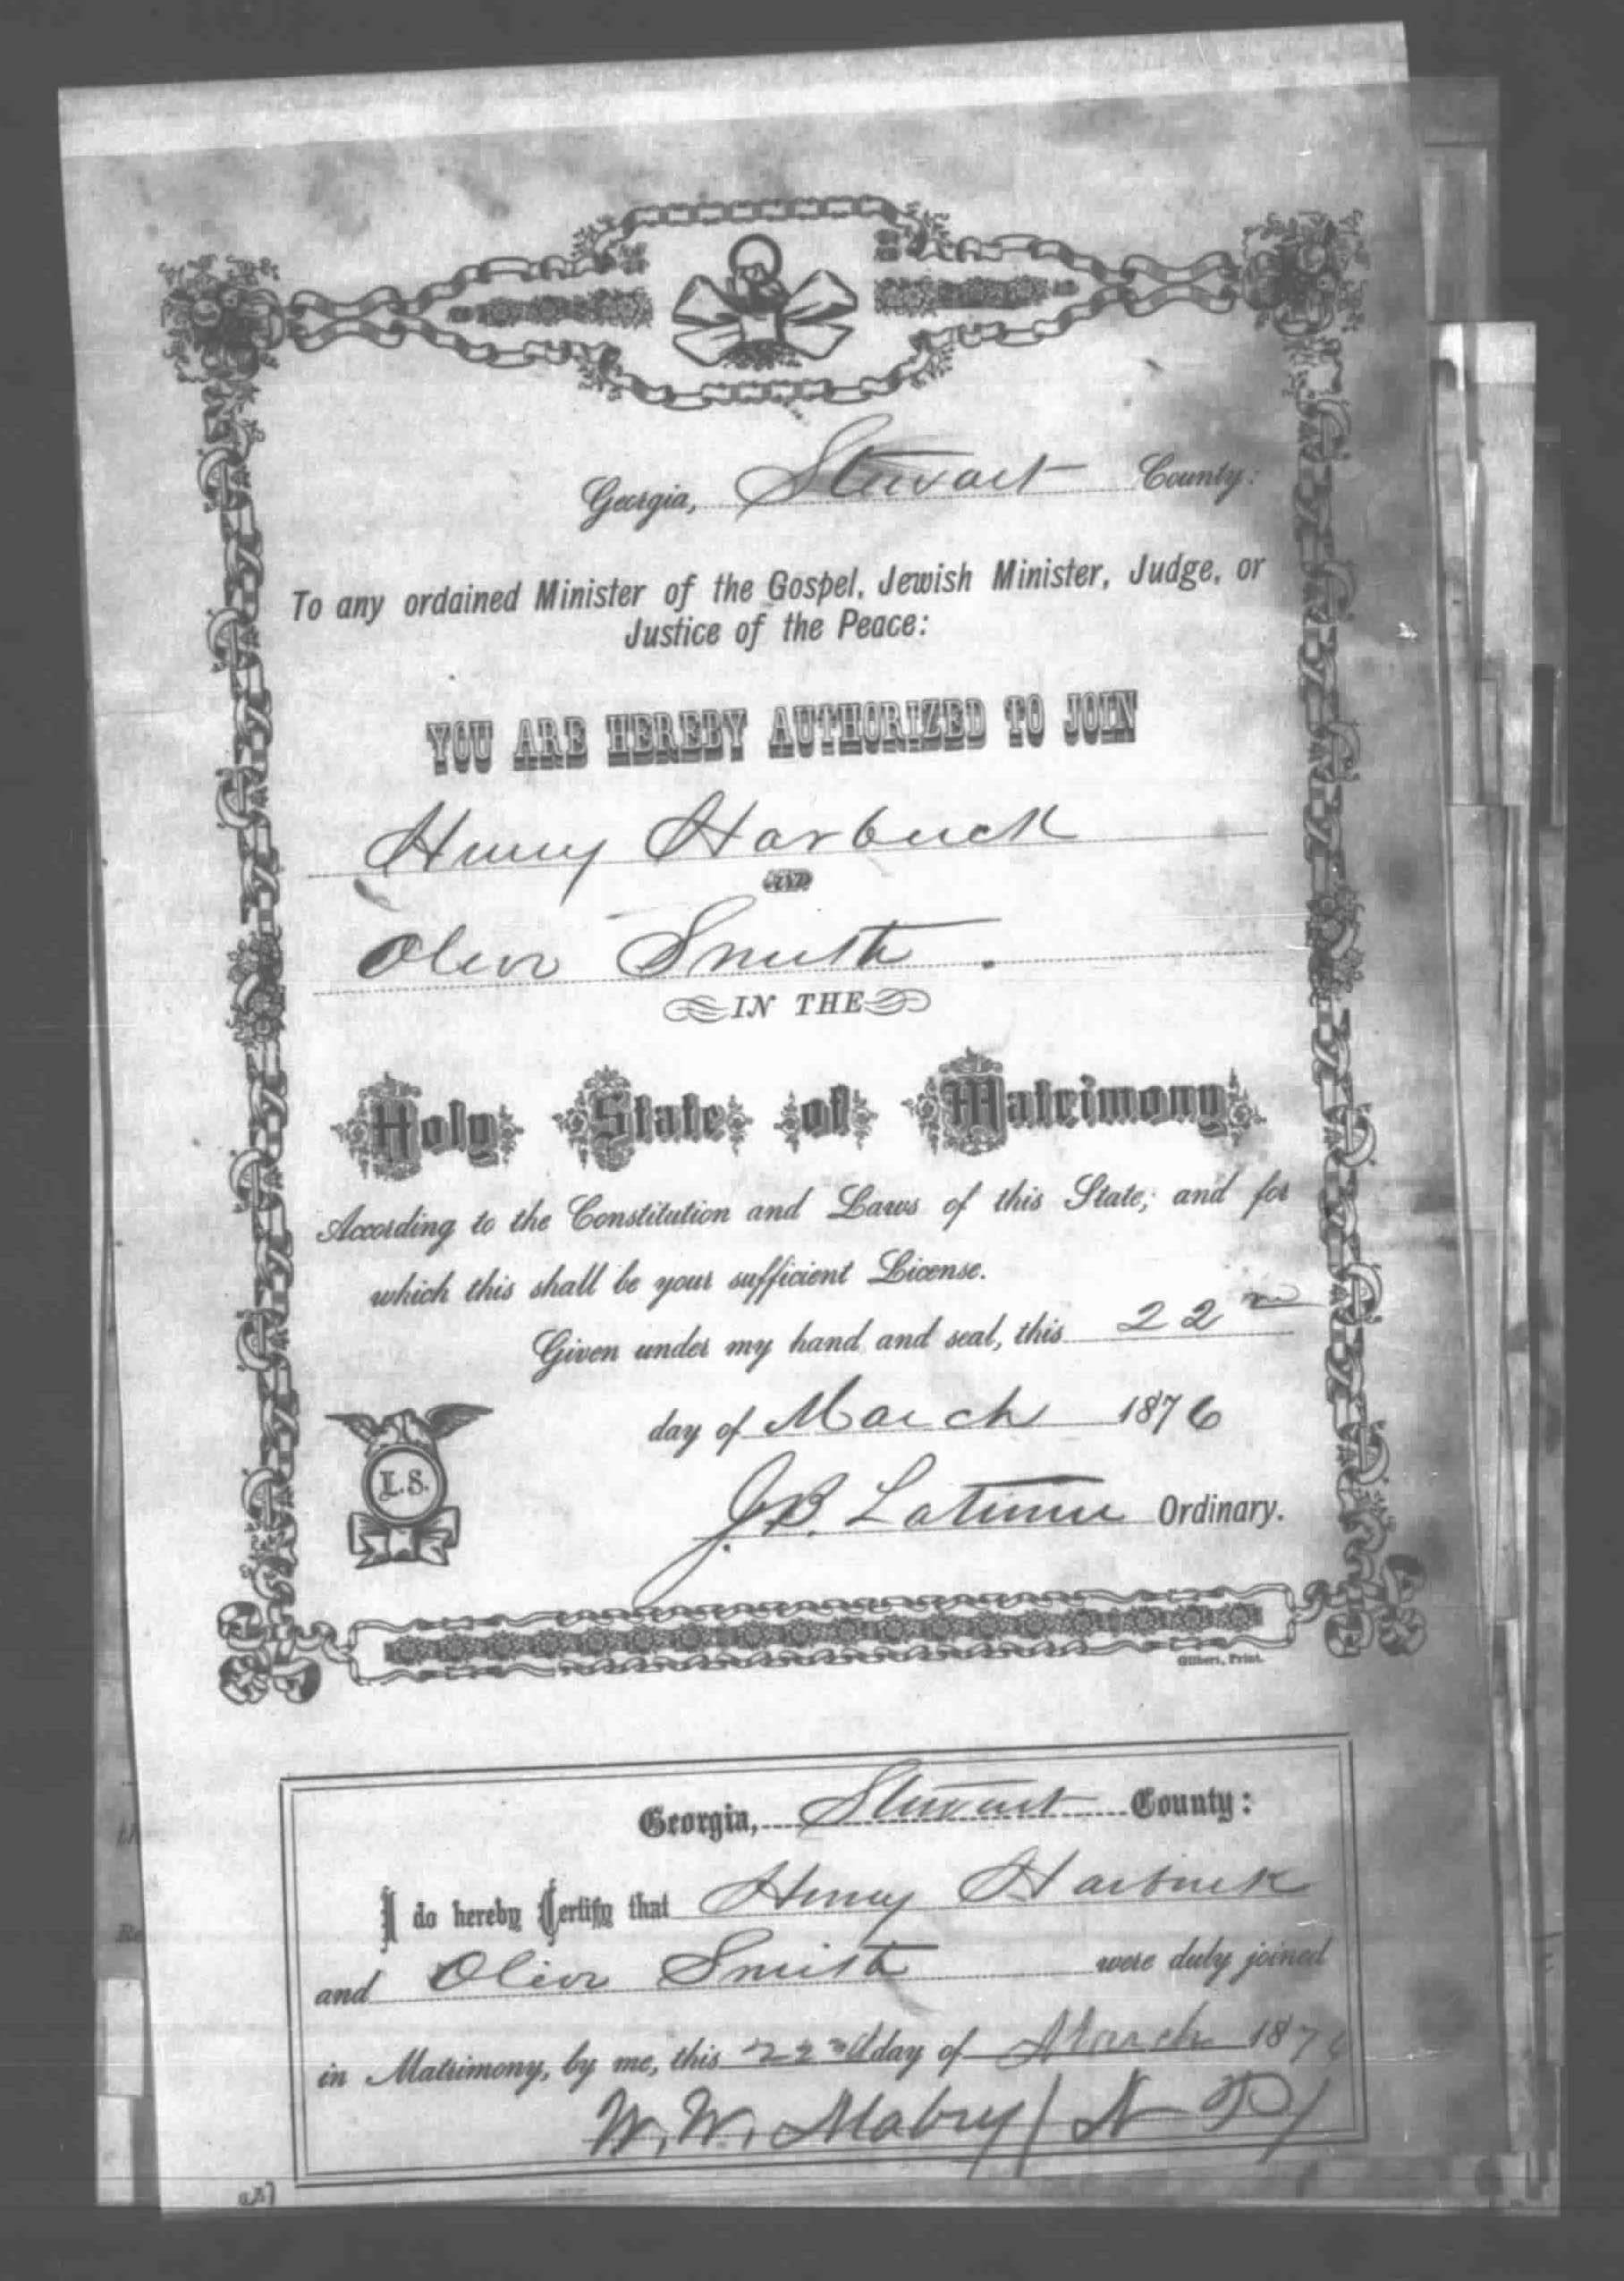 Georgia, Stewart County:
To any ordained Minister of the Gospel, Jewish Minister, Judge, or
Justice of the Peace:
YOU ARE HEREBY AUTHORIZED TO JOIN
Henry Harbuck
AND
Olive Smith.
IN THE
Holy State of Matrimony
According to the Constitution and Laws of this State; and for
which this shall be your sufficient License.
Given under my hand and seal, this 22nd
day of March 1876
L.S.
J.B. Latimer Ordinary.
Gilbert, Print.
Georgia, Stewart County:
I do hereby Certify that Henry Harbuck
and Olive Smith were duly joined
in Matrimony, by me, this 22nd day of March 1876
W. W. Mabry (N P)